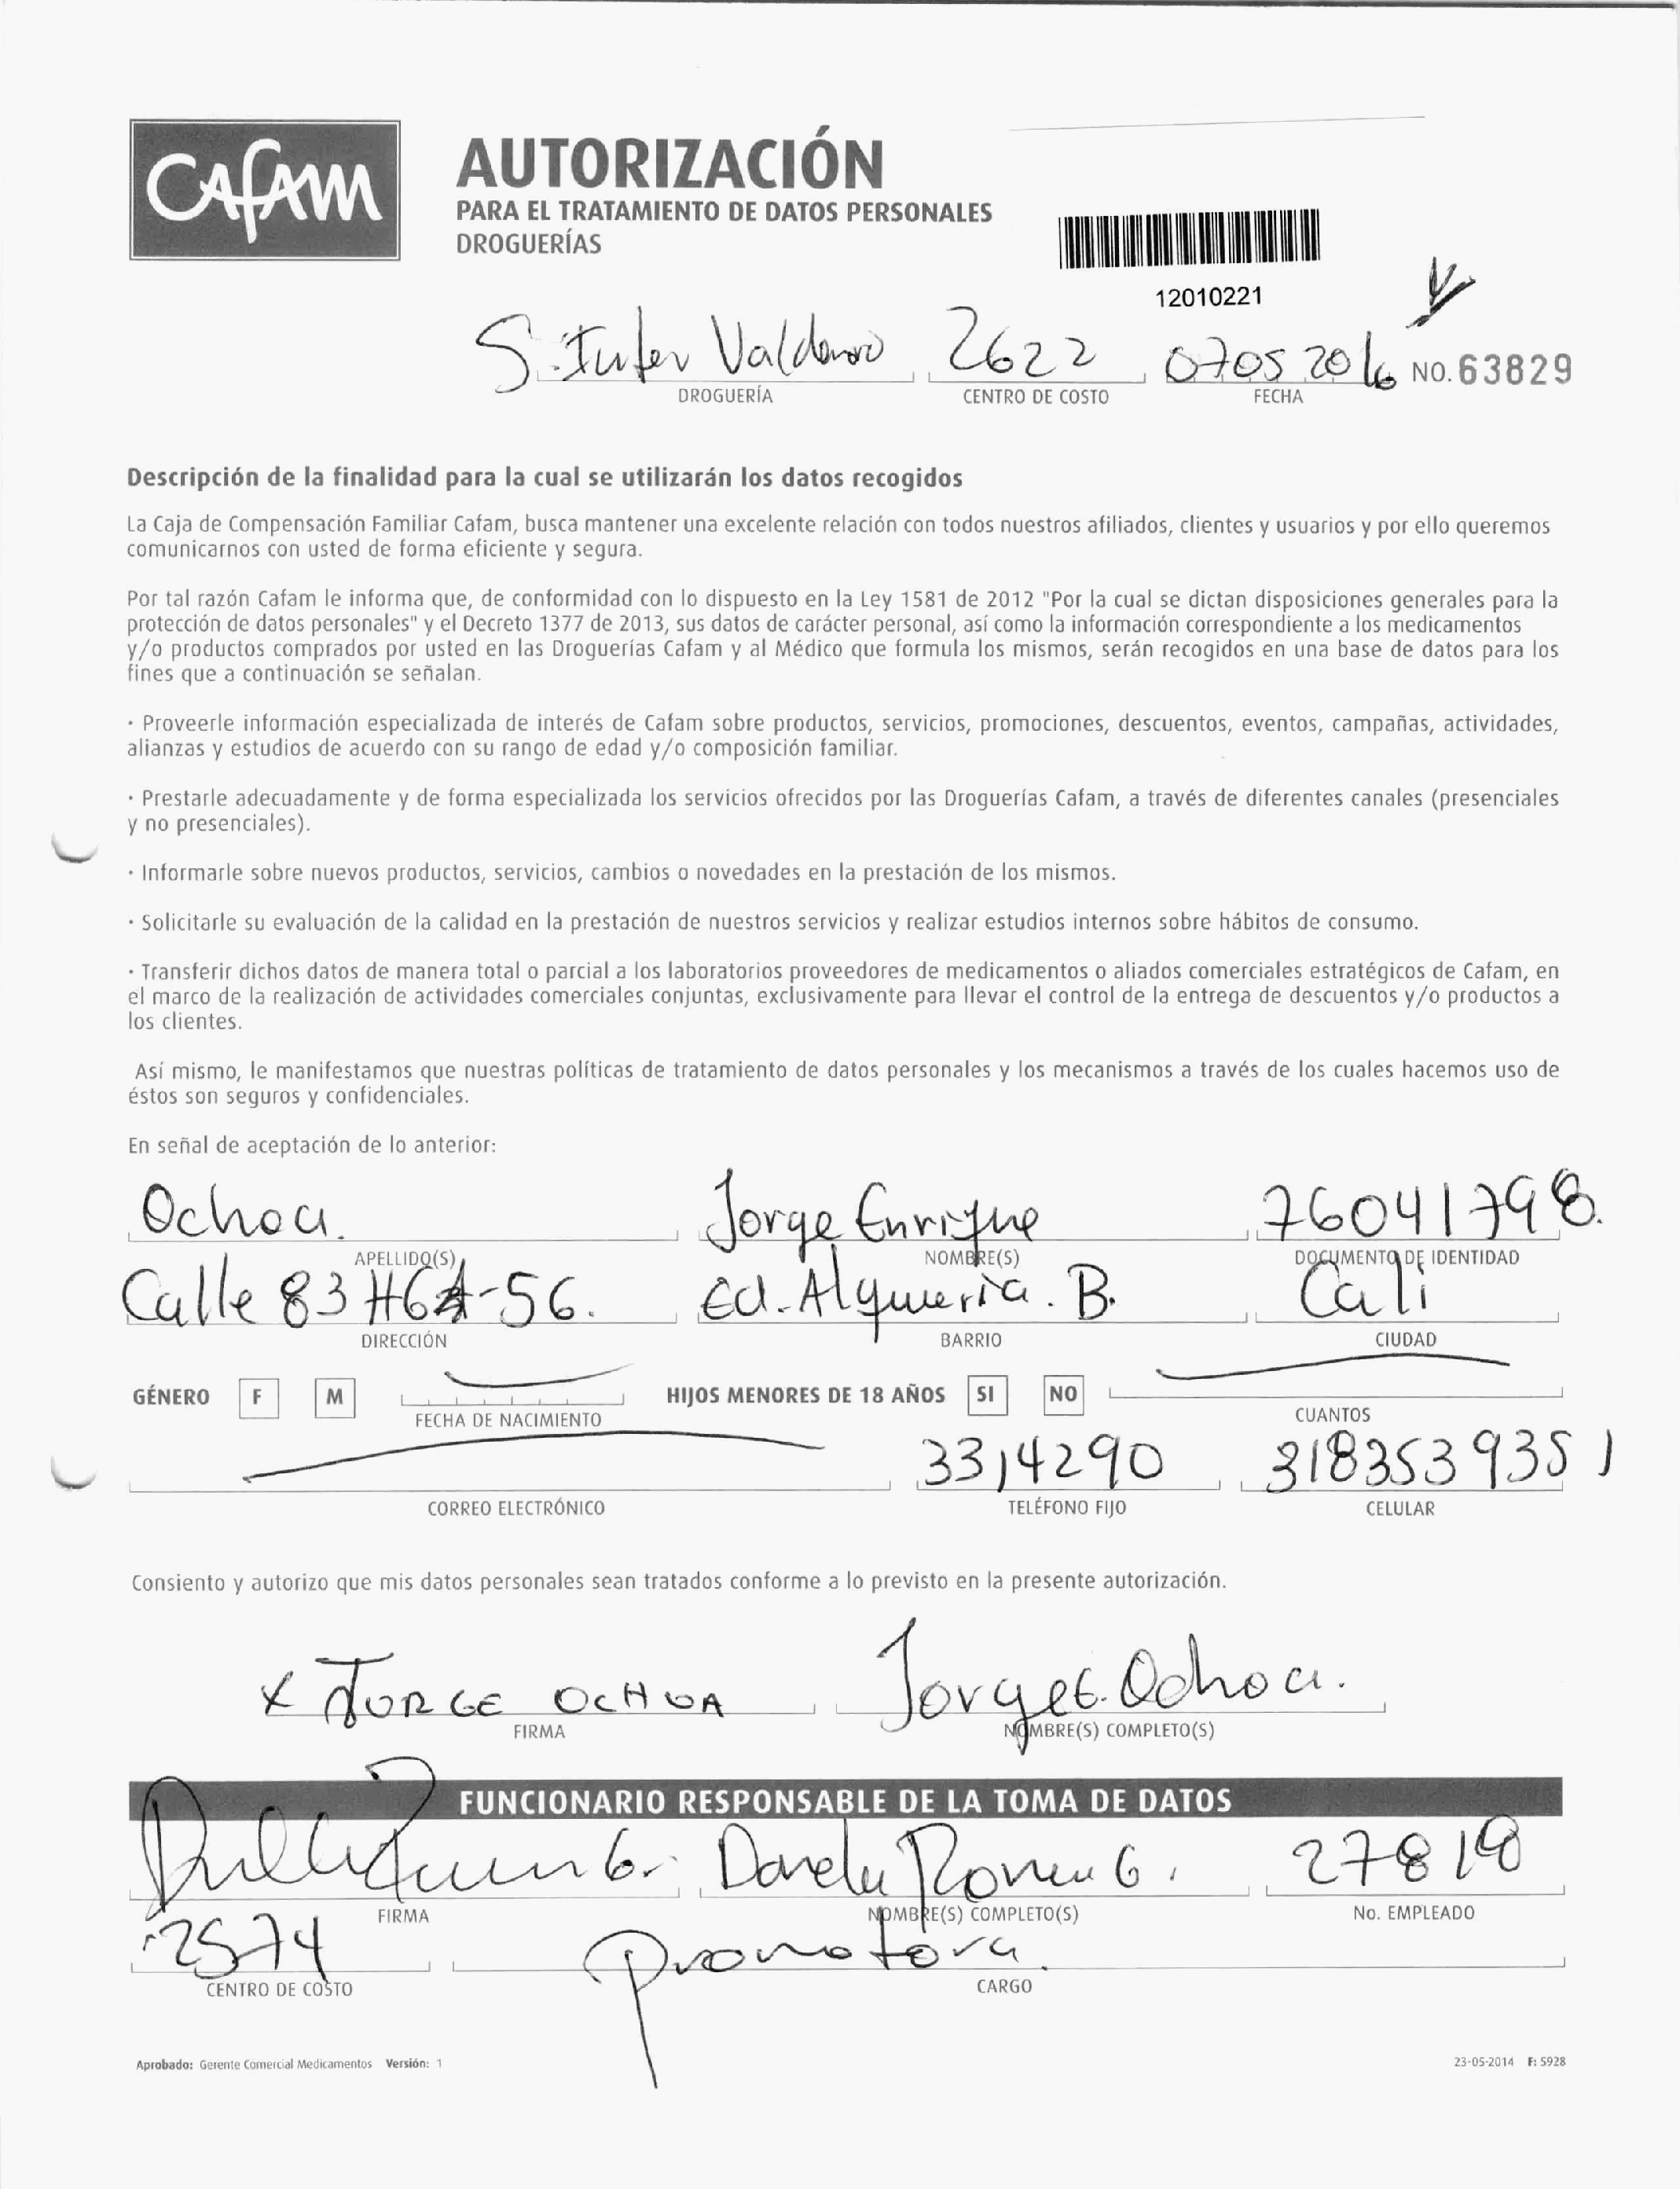 Cafam
AUTORIZACIÓN
PARA EL TRATAMIENTO DE DATOS PERSONALES
DROGUERÍAS
12010221
S. Inter 2622 07 05 2016 NO. 63829
DROGUERÍA CENTRO DE COSTO FECHA
Descripción de la finalidad para la cual se utilizarán los datos recogidos
La Caja de Compensación Familiar Cafam, busca mantener una excelente relación con todos nuestros afiliados, clientes y usuarios y por ello queremos
comunicarnos con usted de forma eficiente y segura.
Por tal razón Cafam le informa que, de conformidad con lo dispuesto en la Ley 1581 de 2012 "Por la cual se dictan disposiciones generales para la
protección de datos personales" y el Decreto 1377 de 2013, sus datos de carácter personal, así como la información correspondiente a los medicamentos
y/o productos comprados por usted en las Droguerías Cafam y al Médico que formula los mismos, serán recogidos en una base de datos para los
fines que a continuación se señalan.
· Proveerle información especializada de interés de Cafam sobre productos, servicios, promociones, descuentos, eventos, campañas, actividades,
alianzas y estudios de acuerdo con su rango de edad y/o composición familiar.
· Prestarle adecuadamente y de forma especializada los servicios ofrecidos por las Droguerías Cafam, a través de diferentes canales (presenciales
y no presenciales).
· Informarle sobre nuevos productos, servicios, cambios o novedades en la prestación de los mismos.
· Solicitarle su evaluación de la calidad en la prestación de nuestros servicios y realizar estudios internos sobre hábitos de consumo.
· Transferir dichos datos de manera total o parcial a los laboratorios proveedores de medicamentos o aliados comerciales estratégicos de Cafam, en
el marco de la realización de actividades comerciales conjuntas, exclusivamente para llevar el control de la entrega de descuentos y/o productos a
los clientes.
Así mismo, le manifestamos que nuestras políticas de tratamiento de datos personales y los mecanismos a través de los cuales hacemos uso de
éstos son seguros y confidenciales.
En señal de aceptación de lo anterior:
Ochoa. Jorge Enrique 76041798.
APELLIDO(S) NOMBRE(S) DOCUMENTO DE IDENTIDAD
Calle 83 #6A-56. Ed. Alqueria. B. Cali
DIRECCIÓN BARRIO CIUDAD
GÉNERO F M HIJOS MENORES DE 18 AÑOS SI NO
FECHA DE NACIMIENTO CUANTOS
3314290 3183539351
CORREO ELECTRÓNICO TELÉFONO FIJO CELULAR
Consiento y autorizo que mis datos personales sean tratados conforme a lo previsto en la presente autorización.
X JORGE OCHOA Jorge E. Ochoa.
FIRMA NOMBRE(S) COMPLETO(S)
FUNCIONARIO RESPONSABLE DE LA TOMA DE DATOS
G. 27818
FIRMA NOMBRE(S) COMPLETO(S) No. EMPLEADO
2574 promotora
CENTRO DE COSTO CARGO
Aprobado: Gerente Comercial Medicamentos Versión: 1 23-05-2014 F: 5928